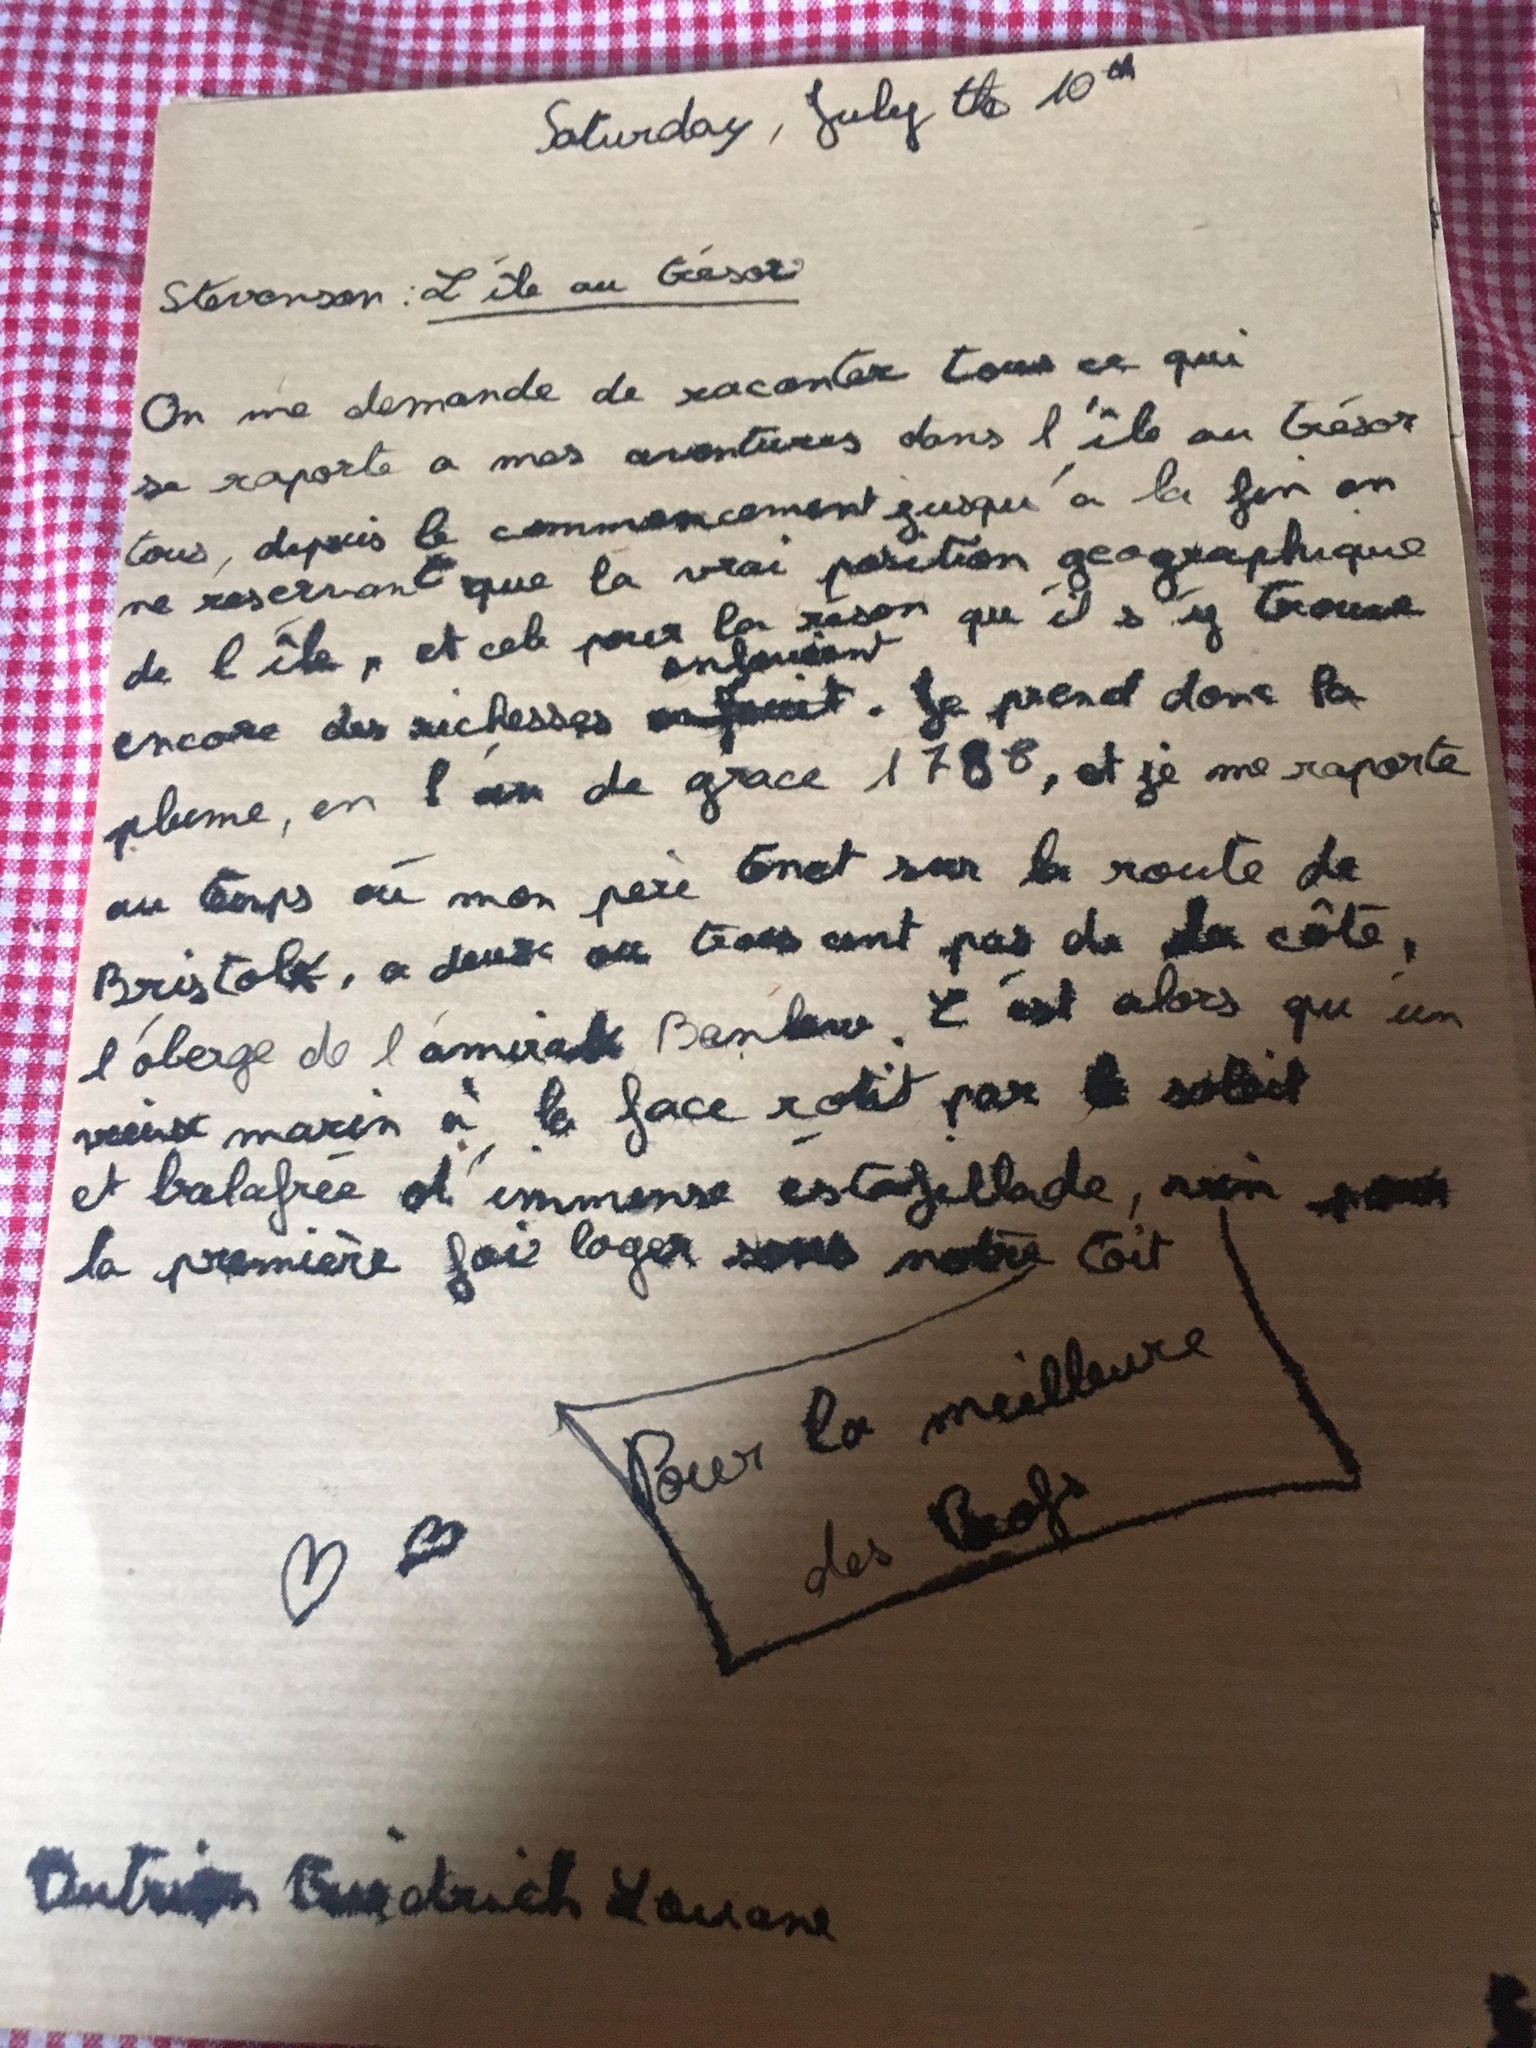 Saturday, July the 10th
Stevenson : L'île au trésor
On me demande de raconter tous ce qui
se raporte a mes aventures dans l'île au trésor
tous, depuis le commencement jusqu'a la fin en
ne reservant que la vrai position geographique
de l'île, et cela pour la réson qu'il s'y trouve
enfouient
encore des richesses . Je prend donc la
plume, en l'an de grace 1788, et je me raporte
au temps où mon père tenet sur la route de
Bristol, a deux ou trois cent pas de la côte,
l'oberge de l'amiral Benbow. C'est alors qu'un
vieux marin à la face rotit par le soleil
et balafrée d'immense estafillade, vin pour
la première foi loger sous notre toit
Pour la meilleure
des Profs
Louane